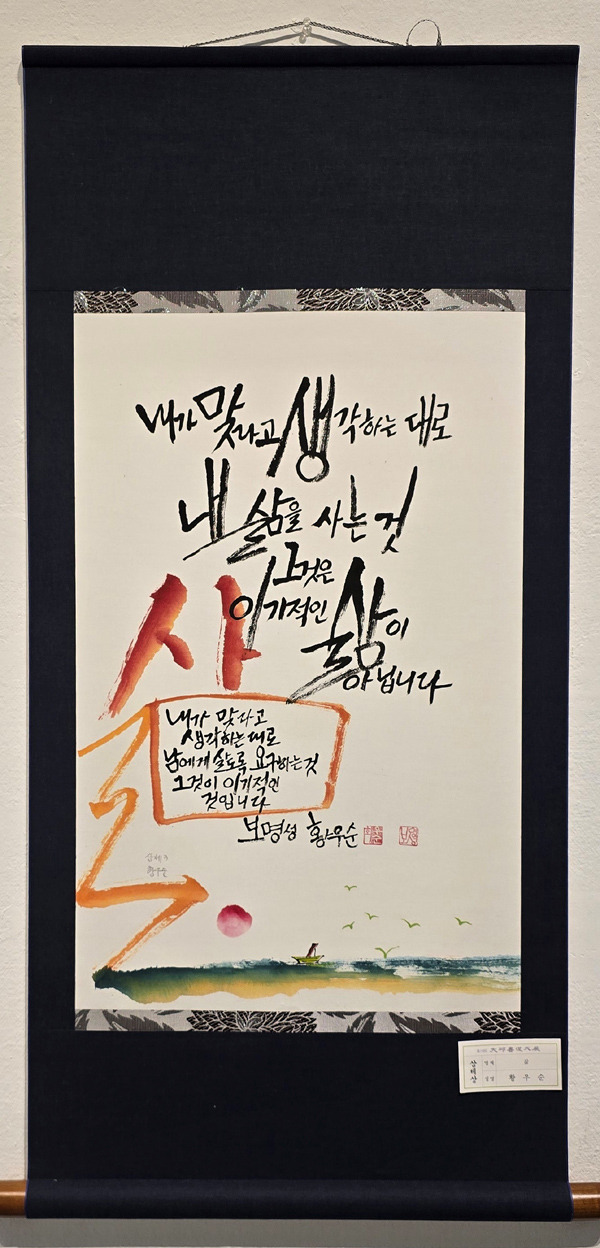 내가 맞다고 생각하는 대로
내 삶을 사는 것
그것은
이기적인 삶이
아닙니다
삶
내가 맞다고
생각하는 대로
남에게 살도록 요구하는 것
그것이 이기적인
것입니다
보명성 황우순
황우순
삶
황우순